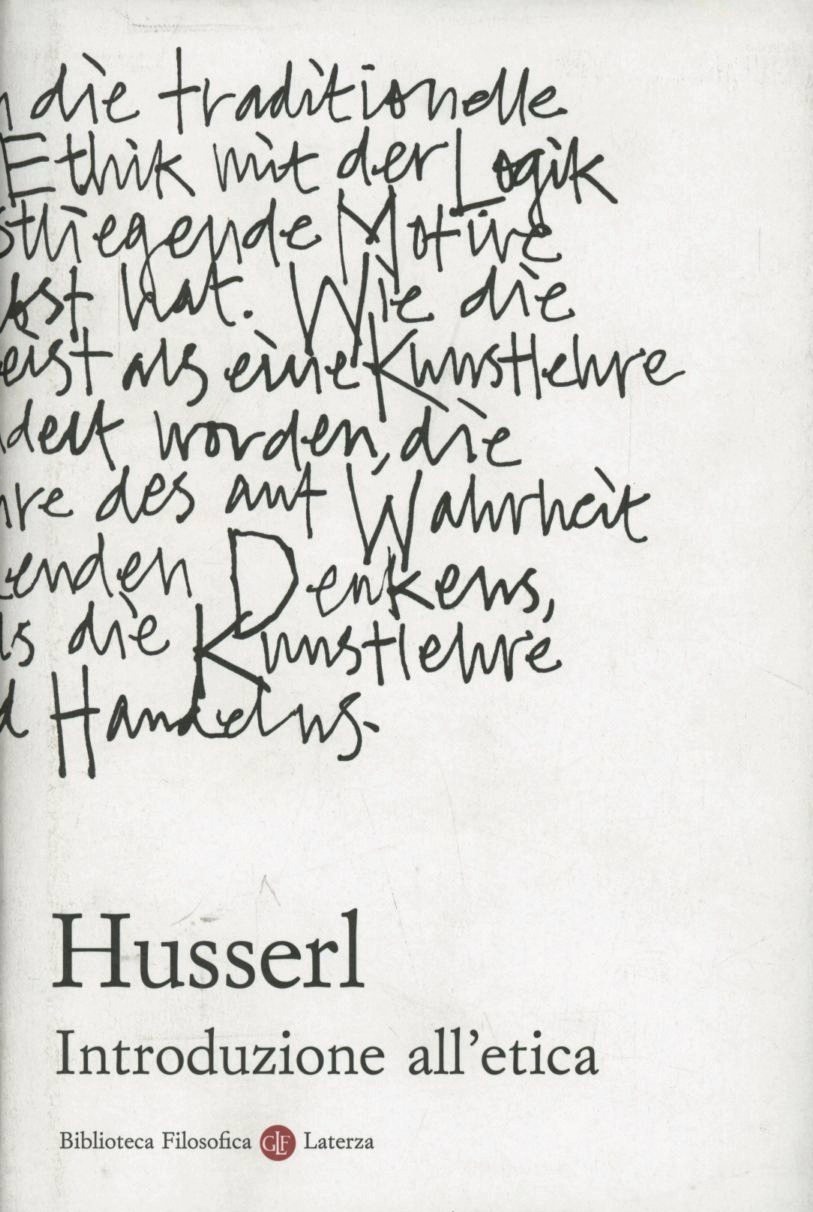 die traditionelle
Ethik mit der Logik
stliegende Motive
hat. Wie die
eist als eine Kunstlehre
delt worden, die
hre des auf Wahrheit
enden Denkens,
ls die Kunstlehre
d Handelns.
Husserl
Introduzione all'etica
Biblioteca Filosofica GLF Laterza